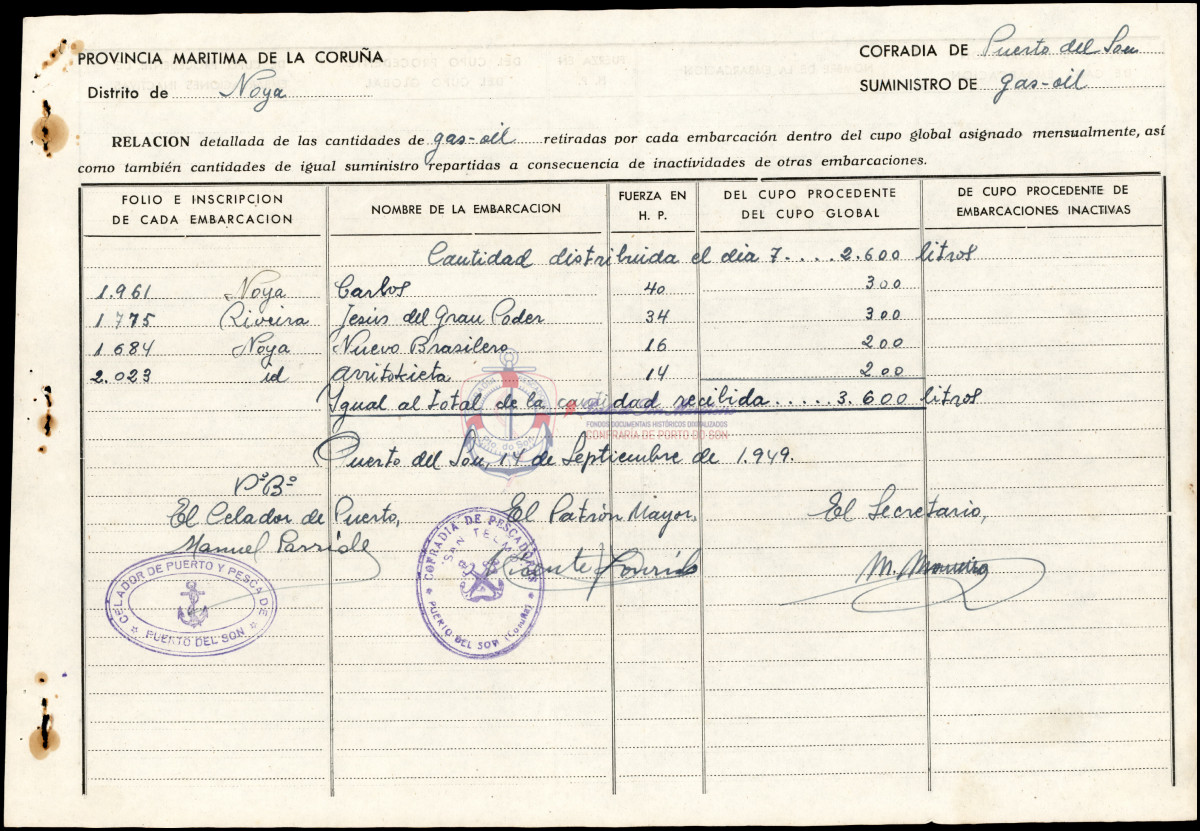 PROVINCIA MARITIMA DE LA CORUÑA
COFRADIA DE Puerto del Son
Distrito de Noya
SUMINISTRO DE gas-oil
RELACION detallada de las cantidades de gas-oil retiradas por cada embarcación dentro del cupo global asignado mensualmente, así
como también cantidades de igual suministro repartidas a consecuencia de inactividades de otras embarcaciones.
FOLIO E INSCRIPCION DE CADA EMBARCACION
NOMBRE DE LA EMBARCACION
FUERZA EN H. P.
DEL CUPO PROCEDENTE DEL CUPO GLOBAL
DE CUPO PROCEDENTE DE EMBARCACIONES INACTIVAS
Cantidad distribuida el dia 7.... 2.600 litros
1.961 Noya Carlos 40 300
1775 Riveira Jesús del Gran Poder 34 300
1684 Noya Nuevo Brasilero 16 200
2.023 id Arritokieta 14 200
Ygual al total de la cantidad recibida..... 3.600 litros
FONDOS DOCUMENTAIS HISTÓRICOS DIXITALIZADOS
CONFRARIA DE PORTO DO SON
Pto. do Son
Puerto del Son, 14 de Septiembre de 1.949.
VºBº
El Celador de Puerto,
El Patrón Mayor,
El Secretario,
Manuel
Vicente
M.
CELADOR DE PUERTO Y PESCA DE
PUERTO DEL SON
COFRADIA DE PESCADORES
"SAN TELMO"
PUERTO DEL SON (Coruña)